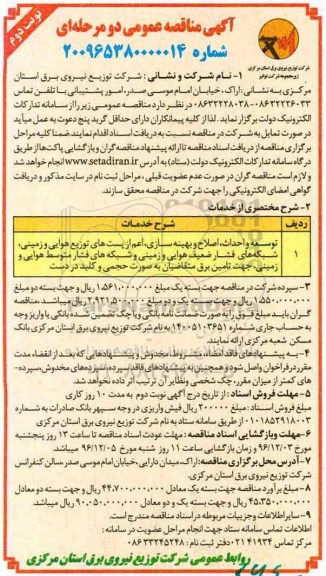 نوبت دوم
آگهی مناقصه عمومی دو مرحله‌ای
شماره ۲۰۰۹۶۵۳۸۰۰۰۰۰۱۴
شرکت توزیع نیروی برق استان مرکزی
۱- نام شرکت و نشانی : شرکت توزیع نیروی برق استان
مرکزی به نشانی: اراک، خیابان امام موسی صدر، امور پشتیبانی با تلفن تماس
۰۸۶۳۲۲۲۶۰۳۳-۰۸۶۳۲۲۲۸۰۳۸ در نظر دارد مناقصه عمومی زیر را از سامانه تدارکات
الکترونیک دولت برگزار نماید. لذا از کلیه پیمانکاران دارای حداقل گرید پنج دعوت به عمل میآید
در صورت تمایل به شرکت در مناقصه نسبت به دریافت اسناد اقدام نمایند. ضمنا کلیه مراحل
برگزاری مناقصه از دریافت اسناد مناقصه تا ارائه پیشنهاد مناقصه گران و بازگشایی پاکت‌ها از طریق
درگاه سامانه تدارکات الکترونیک دولت (ستاد) به آدرس www.setadiran.ir انجام خواهد شد
و لازم است مناقصه گران در صورت عدم عضویت قبلی، مراحل ثبت نام در سایت مذکور و دریافت
گواهی امضای الکترونیکی را جهت شرکت در مناقصه محقق سازند.
۲- شرح مختصری از خدمات
ردیف شرح خدمات
۱ توسعه و احداث، اصلاح و بهینه سازی، اعم از پست های توزیع هوایی و زمینی،
شبکه‌های فشار ضعیف هوایی و زمینی و شبکه های فشار متوسط هوایی و
زمینی، جهت تامین برق متقاضیان به صورت حجمی و کلید در دست
۳- سپرده شرکت در مناقصه جهت بسته یک مبلغ ۱.۵۶۱.۰۰۰.۰۰۰ ریال و جهت بسته دو مبلغ
۱.۵۵۰.۰۰۰.۰۰۰ ریال و جهت بسته یک و دو مبلغ ۲.۹۲۱.۵۰۰.۰۰۰ ریال میباشد. مناقصه
گران باید مبلغ فوق را به صورت ضمانت نامه بانکی و یا چک تضمین شده بانکی یا واریز وجه
به حساب جاری شماره ۱۴۰۰۵۱۰۳۶۵۱ به نام شرکت توزیع نیروی برق استان مرکزی بانک
مسکن شعبه مرکزی ارائه نمایند.
۴- به پیشنهادهای فاقد امضاء، مشروط، مخدوش و پیشنهادهایی که بعد از انقضاء مدت
مقرر در فراخوان واصل شود و همچنین به پیشنهادهای فاقد سپرده، سپرده‌های مخدوش، سپرده‌
های کمتر از میزان مقرر، چک شخصی و نظایر آن ترتیب اثر داده نخواهد شد.
۵- مهلت فروش اسناد: از تاریخ درج آگهی نوبت دوم به مدت ۱۰ روز کاری
مبلغ فروش اسناد: مبلغ ۲۰۰۰۰۰ ریال فیش واریزی در وجه سپهر بانک صادرات به شماره
۰۱۰۱۸۵۲۹۱۸۰۰۳ از طریق سامانه ستاد به نام شرکت توزیع نیروی برق استان مرکزی
۶- مهلت و بازگشایی اسناد مناقصه: مهلت عودت اسناد مناقصه تا ساعت ۱۳ روز پنجشنبه
مورخ ۹۶/۱۲/۰۳ و زمان بازگشایی ساعت ۱۱ روز شنبه مورخ ۹۶/۱۲/۰۵ میباشد
۷- آدرس محل برگزاری مناقصه: اراک، میدان دارایی، خیابان امام موسی صدر، سالن کنفرانس
شرکت توزیع نیروی برق استان مرکزی.
۸- مبلغ برآورد مناقصه جهت بسته یک معادل ۴۴.۷۰۰.۰۰۰.۰۰۰ ریال و جهت بسته دو معادل
۴۵.۳۵۰.۰۰۰.۰۰۰ ریال و جهت بسته یک و دو معادل ۹۰.۰۵۰.۰۰۰.۰۰۰ ریال میباشد.
۹- سایر اطلاعات و جزییات مربوطه در اسناد مناقصه مندرج است.
اطلاعات تماس سامانه ستاد جهت انجام مراحل عضویت در سامانه :
مرکز تماس ۴۱۹۳۴-۰۲۱ دفتر ثبت نام : ۰۸۶۳۳۲۴۵۲۴۸
روابط عمومی شرکت توزیع نیروی برق استان مرکزی